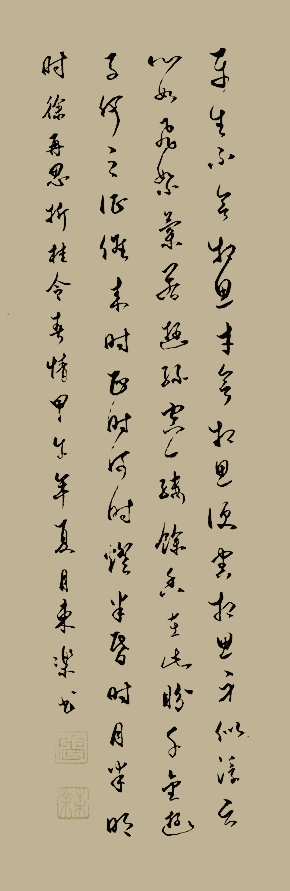 平生不会相思才会相思便害相思身似浮云
心如飛絮氣若遊絲空一縷餘香在此盼千金遊
子何之证候来时正时何时燈半昏时月半明
时徐再思折桂令春情甲午年夏月東书